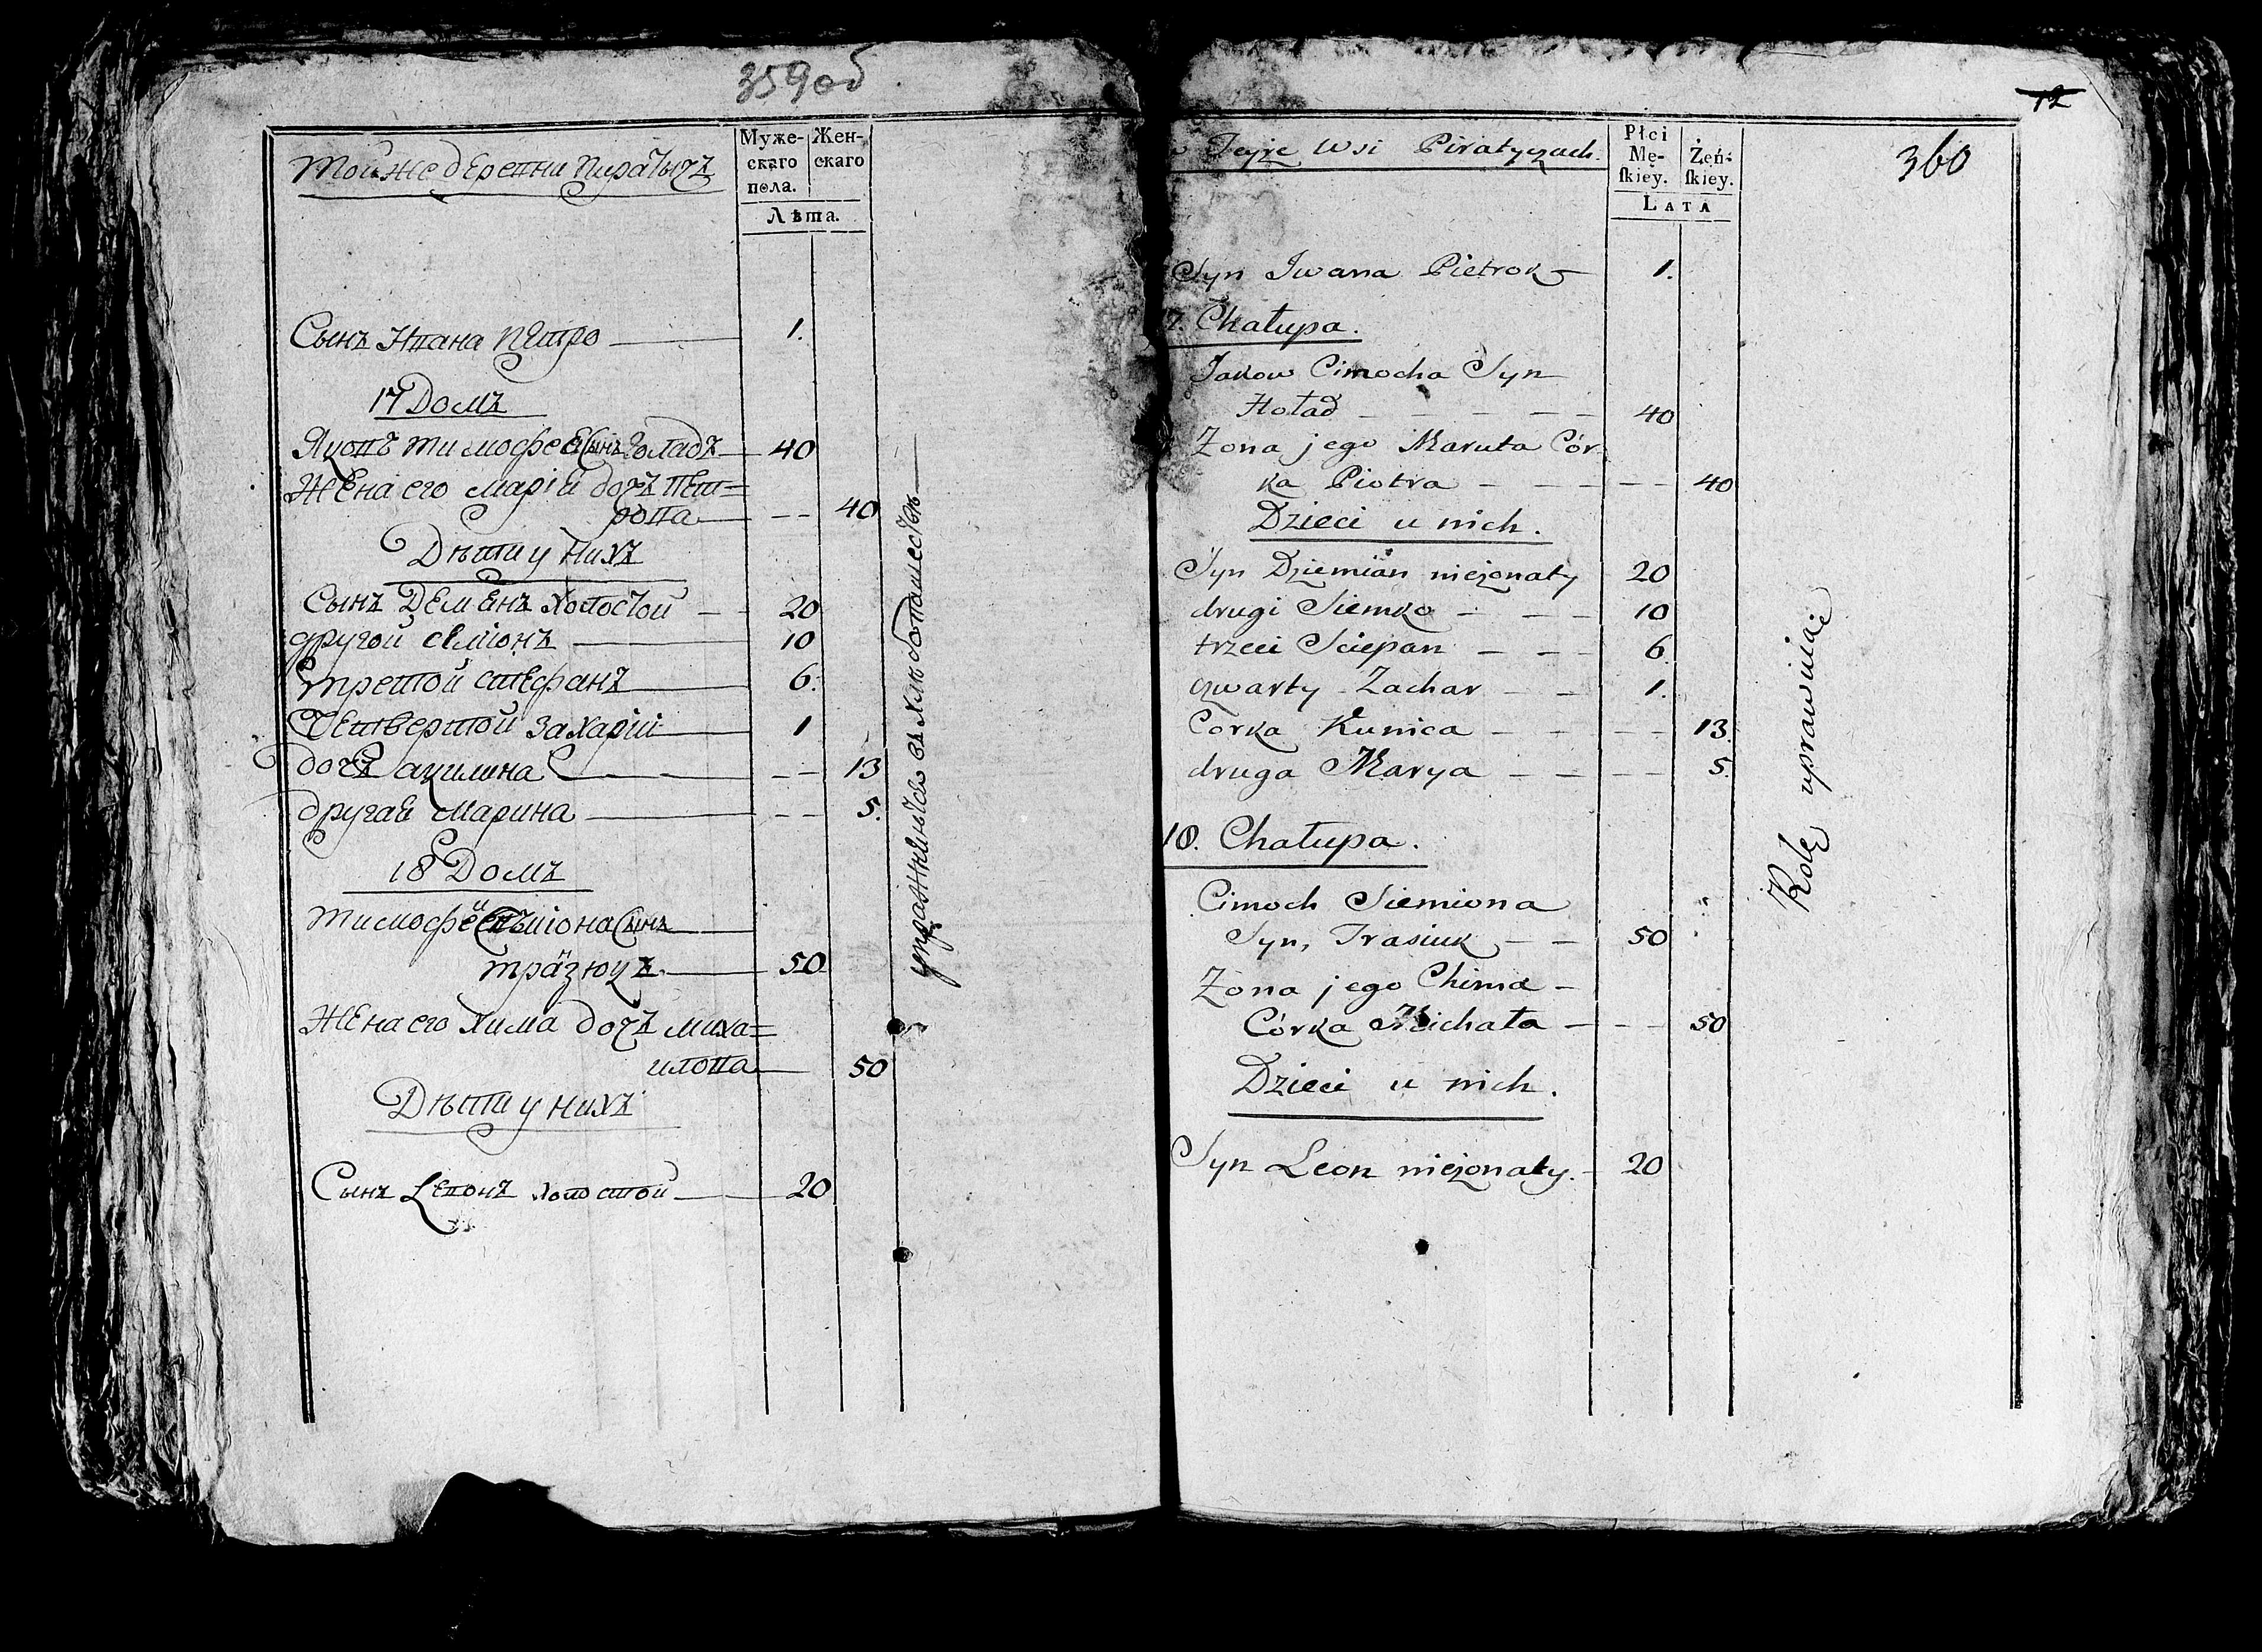 359 об
Той же деревни Пиратыч
Муже-
скаго
пола.
Жен-
скаго
Лѣта.
Сынъ Ивана Петро 1.
17 Домъ
Яковъ Тимофеевъ Сынъ Голадъ 40
Жена его Марія дочъ Пет=
рова 40
Дѣти у нихъ
Сынъ Демѣнъ холостой 20
другой Семіонъ 10
третой Стефанъ 6.
Четвертой Захарій 1
дочъ Акилина 13
другаѣ Марина 5.
18 Домъ
Тимофей Семіона Сынъ
Тразюкъ 50
Жена его Хима дочъ Миха=
илова 50
Дѣти у нихъ
Сынъ Левонъ холостой 20
упражняются въ хлебопашествѣ
12
360
w Teyże Wsi Piratyczach.
Płci
Mę-
ſkiey.
Żeń-
ſkiey.
LATA
Syn Jwana Pietrok 1.
7. Chałupa.
Jakow Cimocha Syn
Hoład 40
Żona jego Maruta Cór
ka Piotra 40
Dzieci u nich.
Syn Dziemian nieżonaty 20
drugi Siemko 10
trzeci Sciepan 6
czwarty Zachar 1.
Corka Kunica 13.
druga Marya 5.
18. Chałupa.
Cimoch Siemiona
Syn, Trasiuk 50
Żona jego Chima
Córka Michała 50
Dzieci u nich.
Syn Leon nieżonaty. 20
Rolę uprawiaią